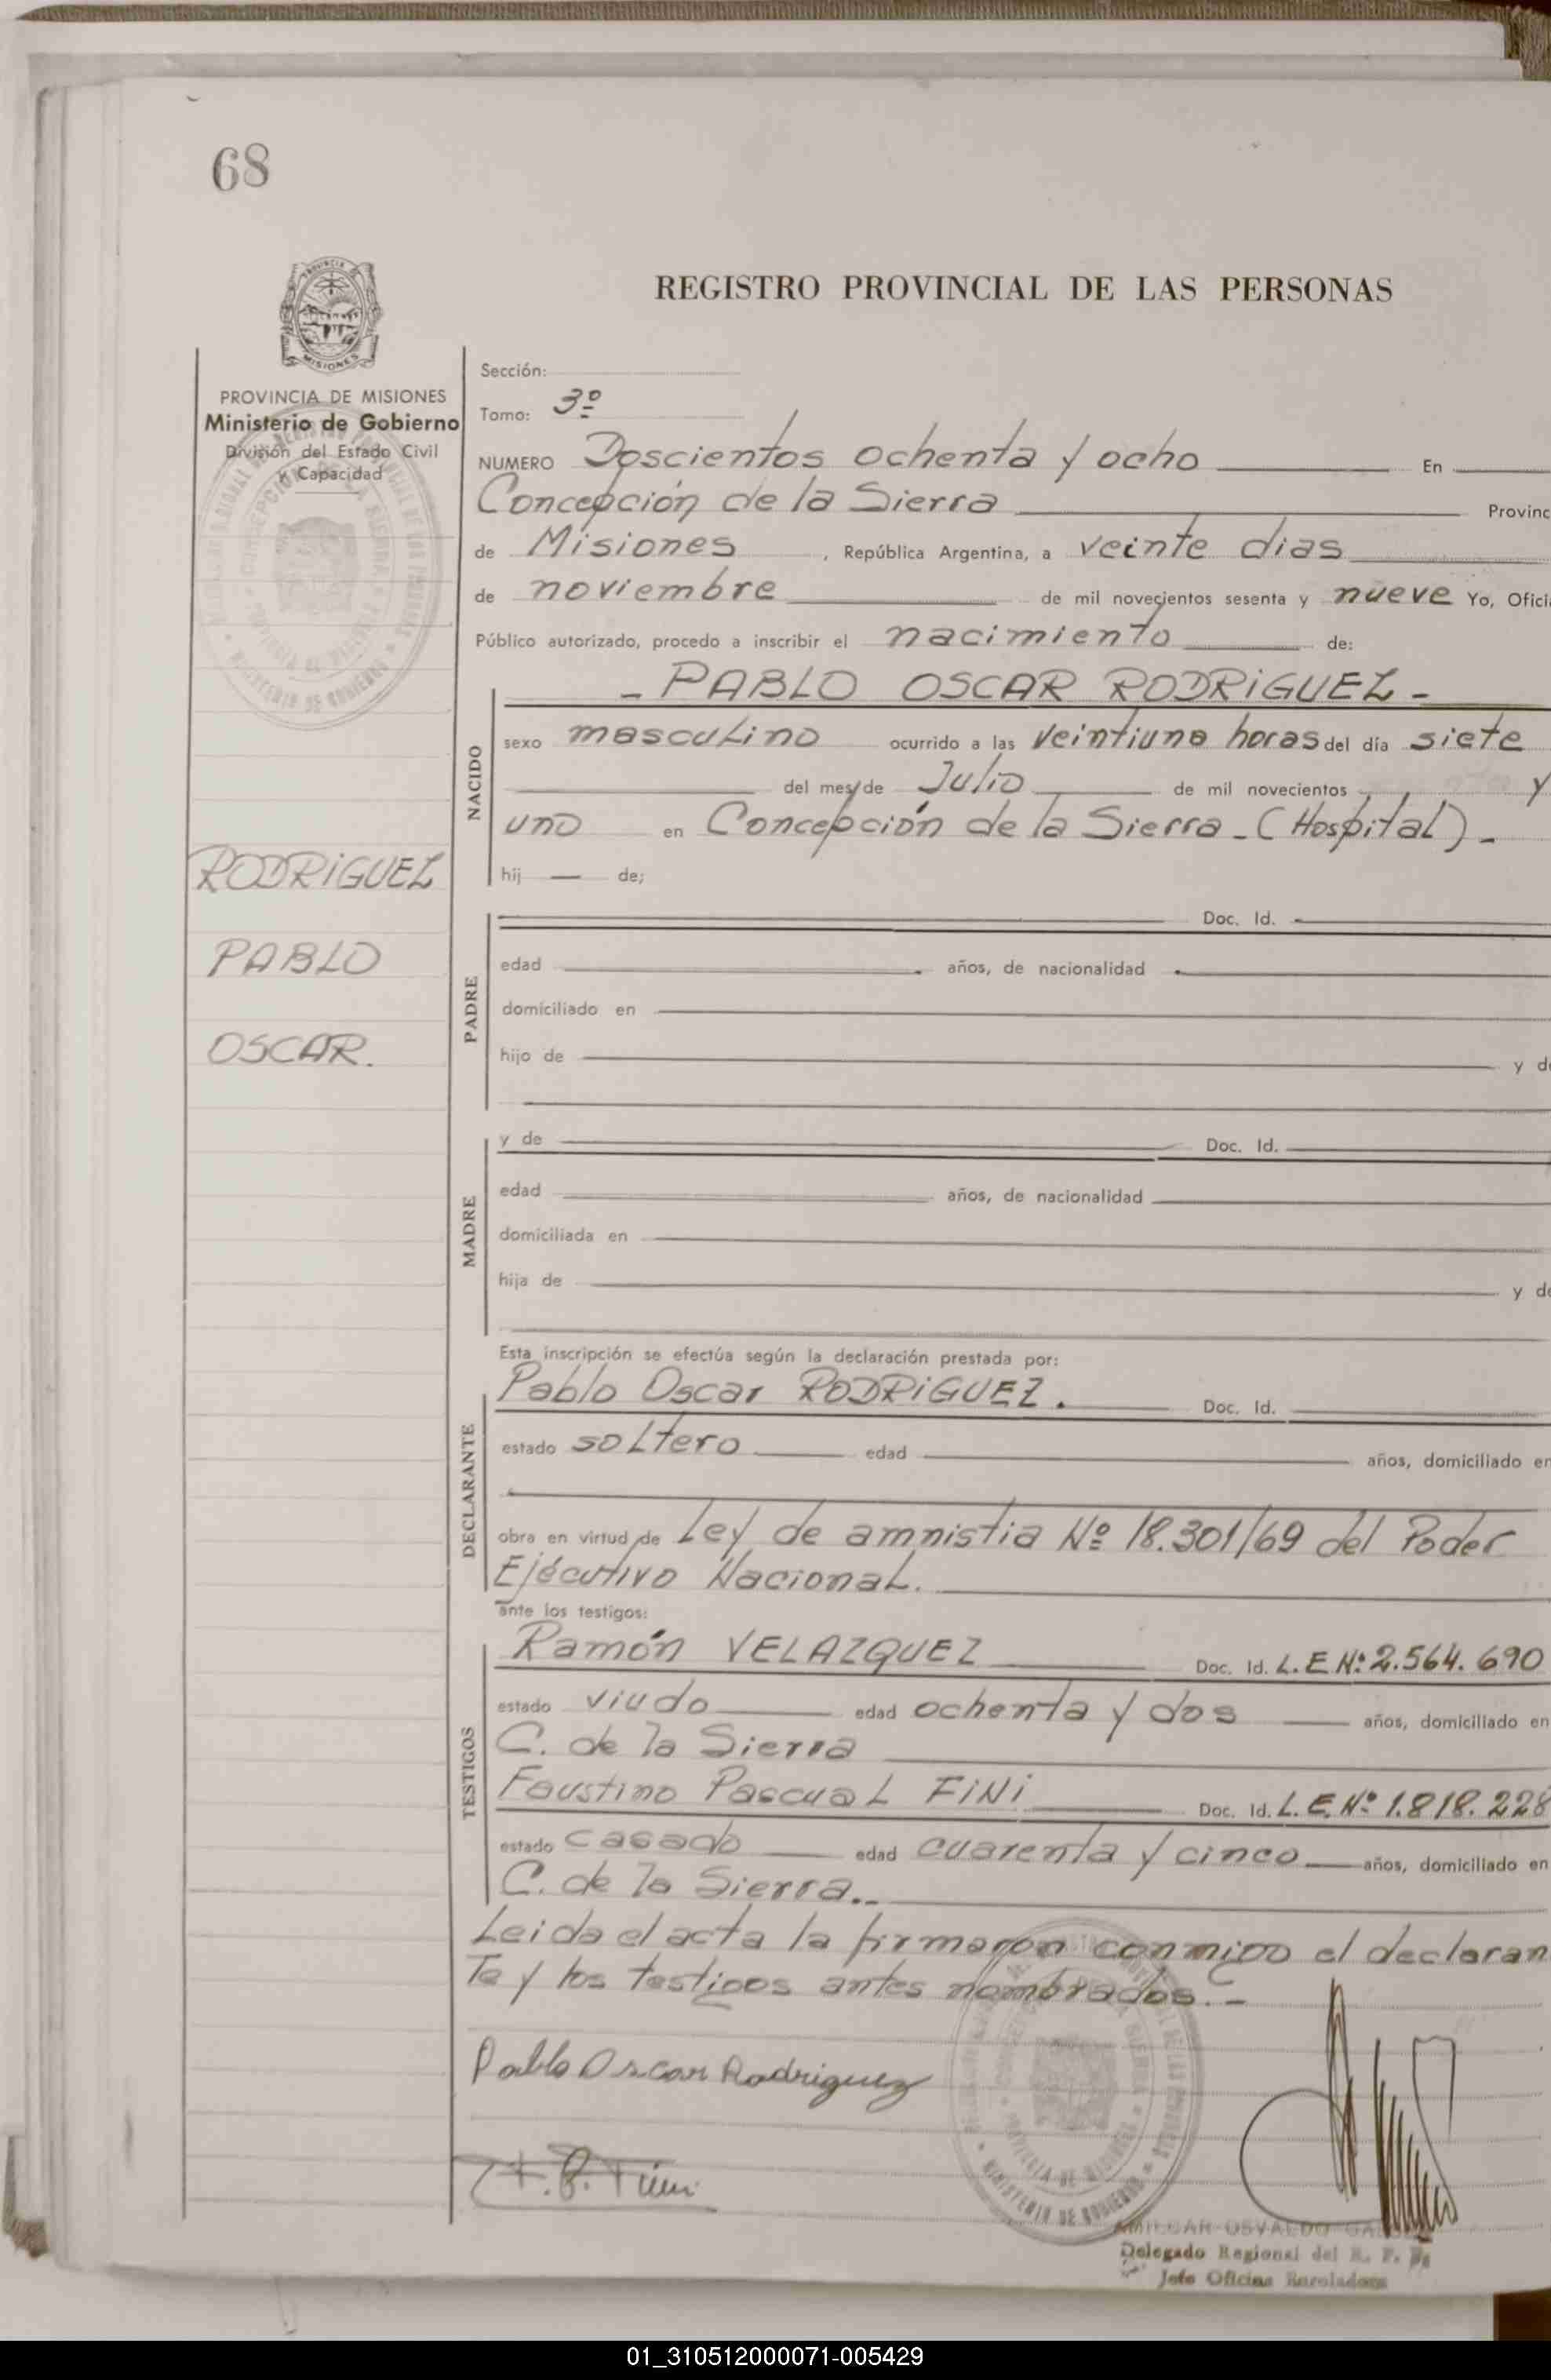 68
REGISTRO PROVINCIAL DE LAS PERSONAS
MISIONES
PROVINCIA DE MISIONES
Ministerio de Gobierno
División del Estado Civil
y Capacidad
Sección:
Tomo: 3º
NUMERO Doscientos ochenta y ocho En
Concepción de la Sierra Provinc
de Misiones , República Argentina, a veinte dias
de noviembre de mil novecientos sesenta y nueve Yo, Ofici
Público autorizado, procedo a inscribir el nacimiento de:
- PABLO OSCAR RODRIGUEZ -
NACIDO
sexo masculino ocurrido a las veintiuna horas del día siete
del mes de Julio de mil novecientos y
uno en Concepción de la Sierra - (Hospital). -
hij — de;
RODRIGUEZ
PABLO
OSCAR.
PADRE
Doc. Id.
edad años, de nacionalidad
domiciliado en
hijo de y de
MADRE
y de Doc. Id.
edad años, de nacionalidad
domiciliada en
hija de y de
Esta inscripción se efectúa según la declaración prestada por:
DECLARANTE
Pablo Oscar RODRIGUEZ. Doc. Id.
estado soltero edad años, domiciliado en
obra en virtud de Ley de amnistia Nº 18.301/69 del Poder
Ejécutivo Nacional.
ante los testigos:
TESTIGOS
Ramón VELAZQUEZ Doc. Id. L.E Nº 2.564.690
estado viudo edad ochenta y dos años, domiciliado en
C. de la Sierra
Faustino Pascual FINI Doc. Id. L.E. Nº 1.818.228
estado casado edad cuarenta y cinco años, domiciliado en
C. de la Sierra.-
Leida el acta la firmaron conmigo el declaran
te y los testigos antes nombrados. -
Pablo Oscar Rodriguez
F. P. Fini
AMILCAR OSVALDO
Delegado Regional del R. P. P.
Jefe Oficina Enroladora
01_310512000071-005429